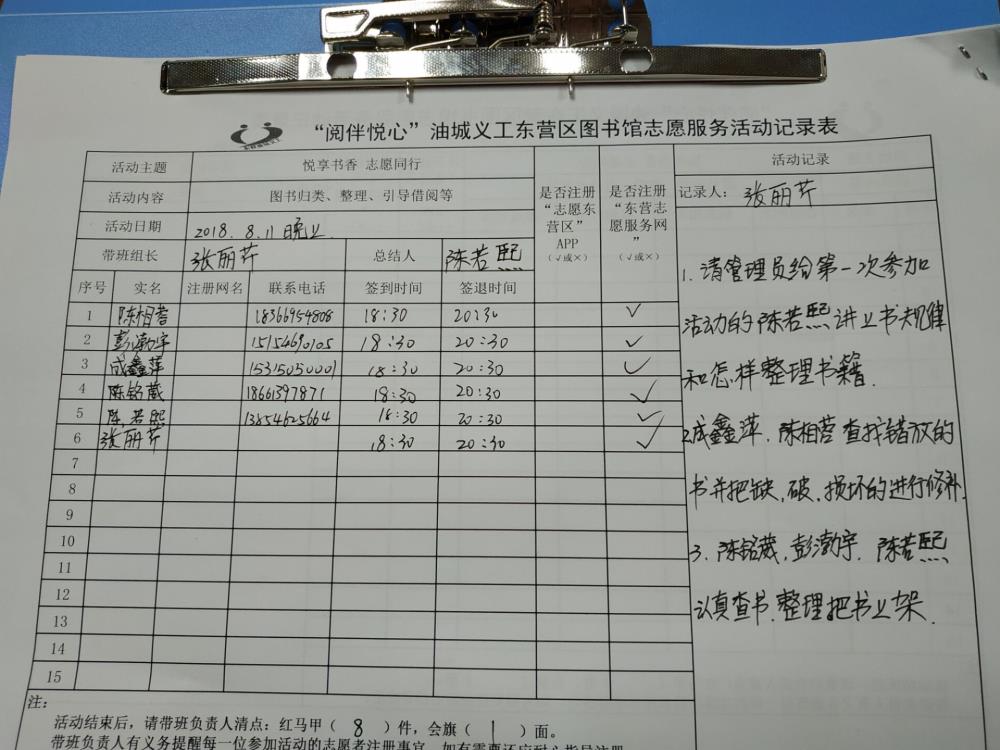 “阅伴悦心”油城义工东营区图书馆志愿服务活动记录表
活动主题 悦享书香 志愿同行
活动内容 图书归类、整理、引导借阅等
活动日期 2018.8.11晚上
带班组长 张丽芹 总结人 陈若熙
是否注册“志愿东营区”APP（√或×）
是否注册“东营志愿服务网”（√或×）
序号 实名 注册网名 联系电话 签到时间 签退时间
1 陈相蓉 18366954808 18:30 20:30 √
2 彭渤宇 15154690105 18:30 20:30 √
3 成鑫萍 15315050001 18:30 20:30 √
4 陈铭葳 18661397871 18:30 20:30 √
5 陈若熙 13854625664 18:30 20:30 √
6 张丽芹 18:30 20:30 √
7
8
9
10
11
12
13
14
15
活动记录
记录人：张丽芹
1.请管理员给第一次参加
活动的陈若熙讲上书规律
和怎样整理书籍.
2.成鑫萍.陈相蓉查找错放的
书并把缺,破,损坏的进行修补.
3.陈铭葳,彭渤宇.陈若熙
认真查书.整理把书上架.
注：
活动结束后，请带班负责人清点：红马甲（ 8 ）件，会旗（ 1 ）面。
带班负责人有义务提醒每一位参加活动的志愿者注册事宜